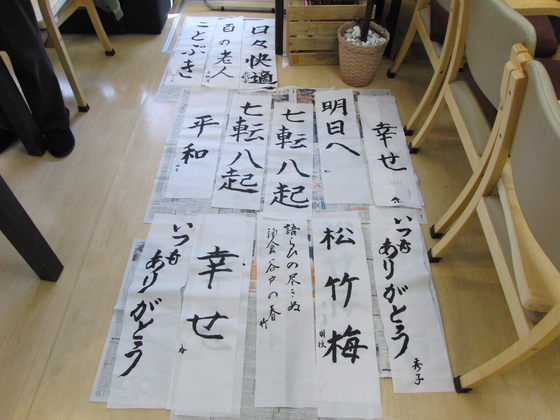 日々快適
百の老人
ことぶき
幸せ
明日へ
七転八起
七転八起
平和
いつも
ありがとう
秀子
松竹梅
語らひの尽きぬ
幸せ
いつも
ありがとう